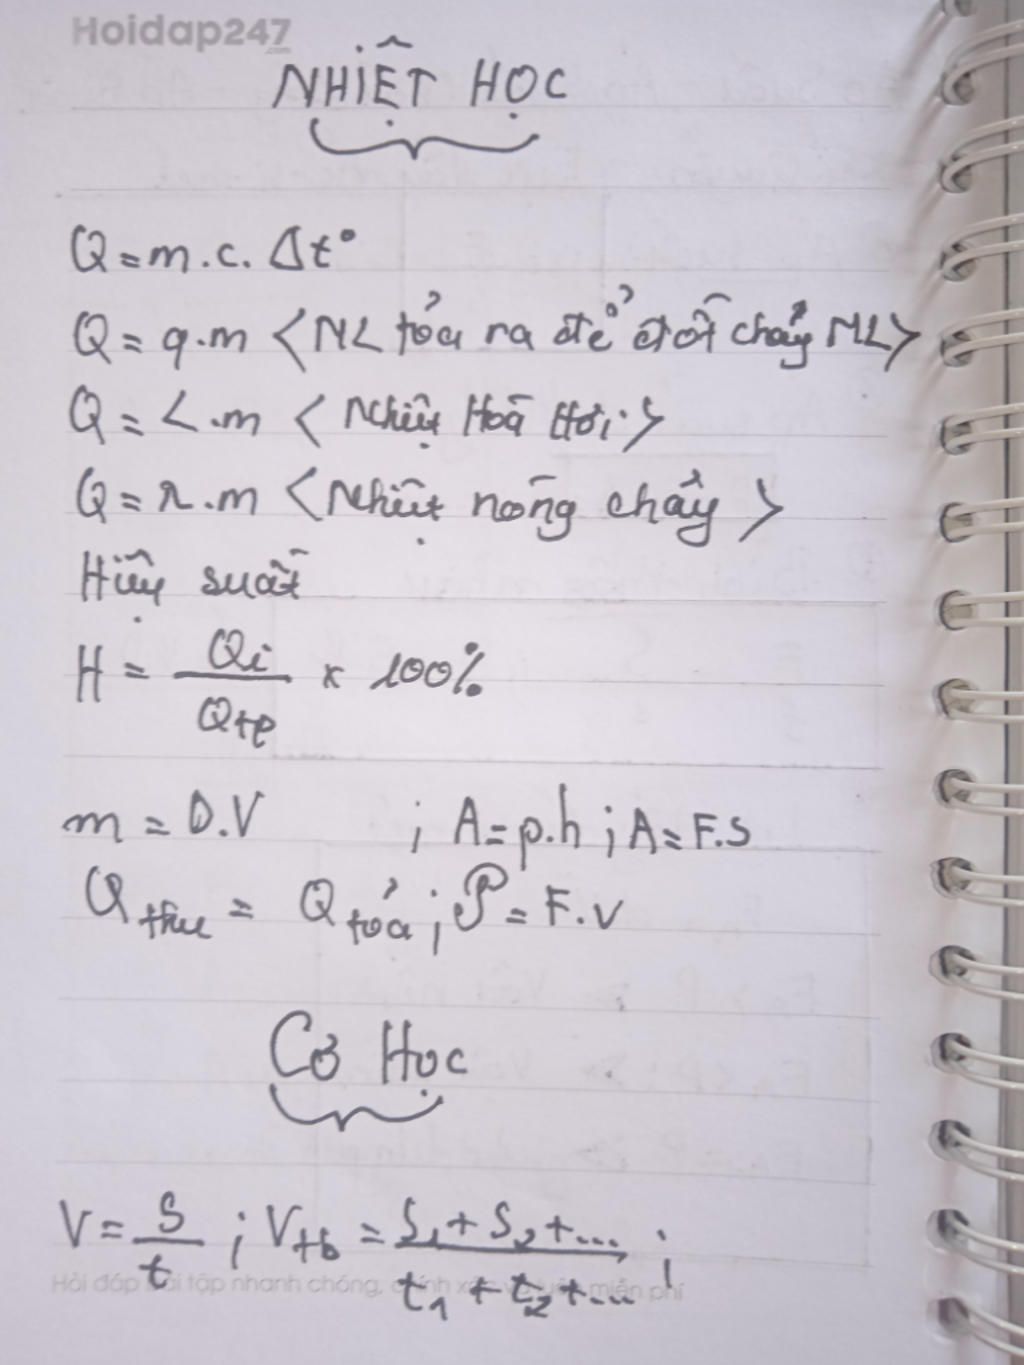 Hoidap247
.com
NHIỆT HỌC
Q = m.c. Δt°
Q = q.m < NL tỏa ra để đốt cháy NL >
Q = L.m < Nhiệt Hoá Hơi >
Q = λ.m < Nhiệt nóng chảy >
Hiệu suất
H = Qi / Qtp x 100%
m = D.V ; A = p.h ; A = F.S
Q thu = Q tỏa ; P = F.v
Cơ Học
V = S / t ; Vtb = S1 + S2 + ... / t1 + t2 + ... ;
Hỏi đáp bài tập nhanh chóng, chính xác và luôn miễn phí